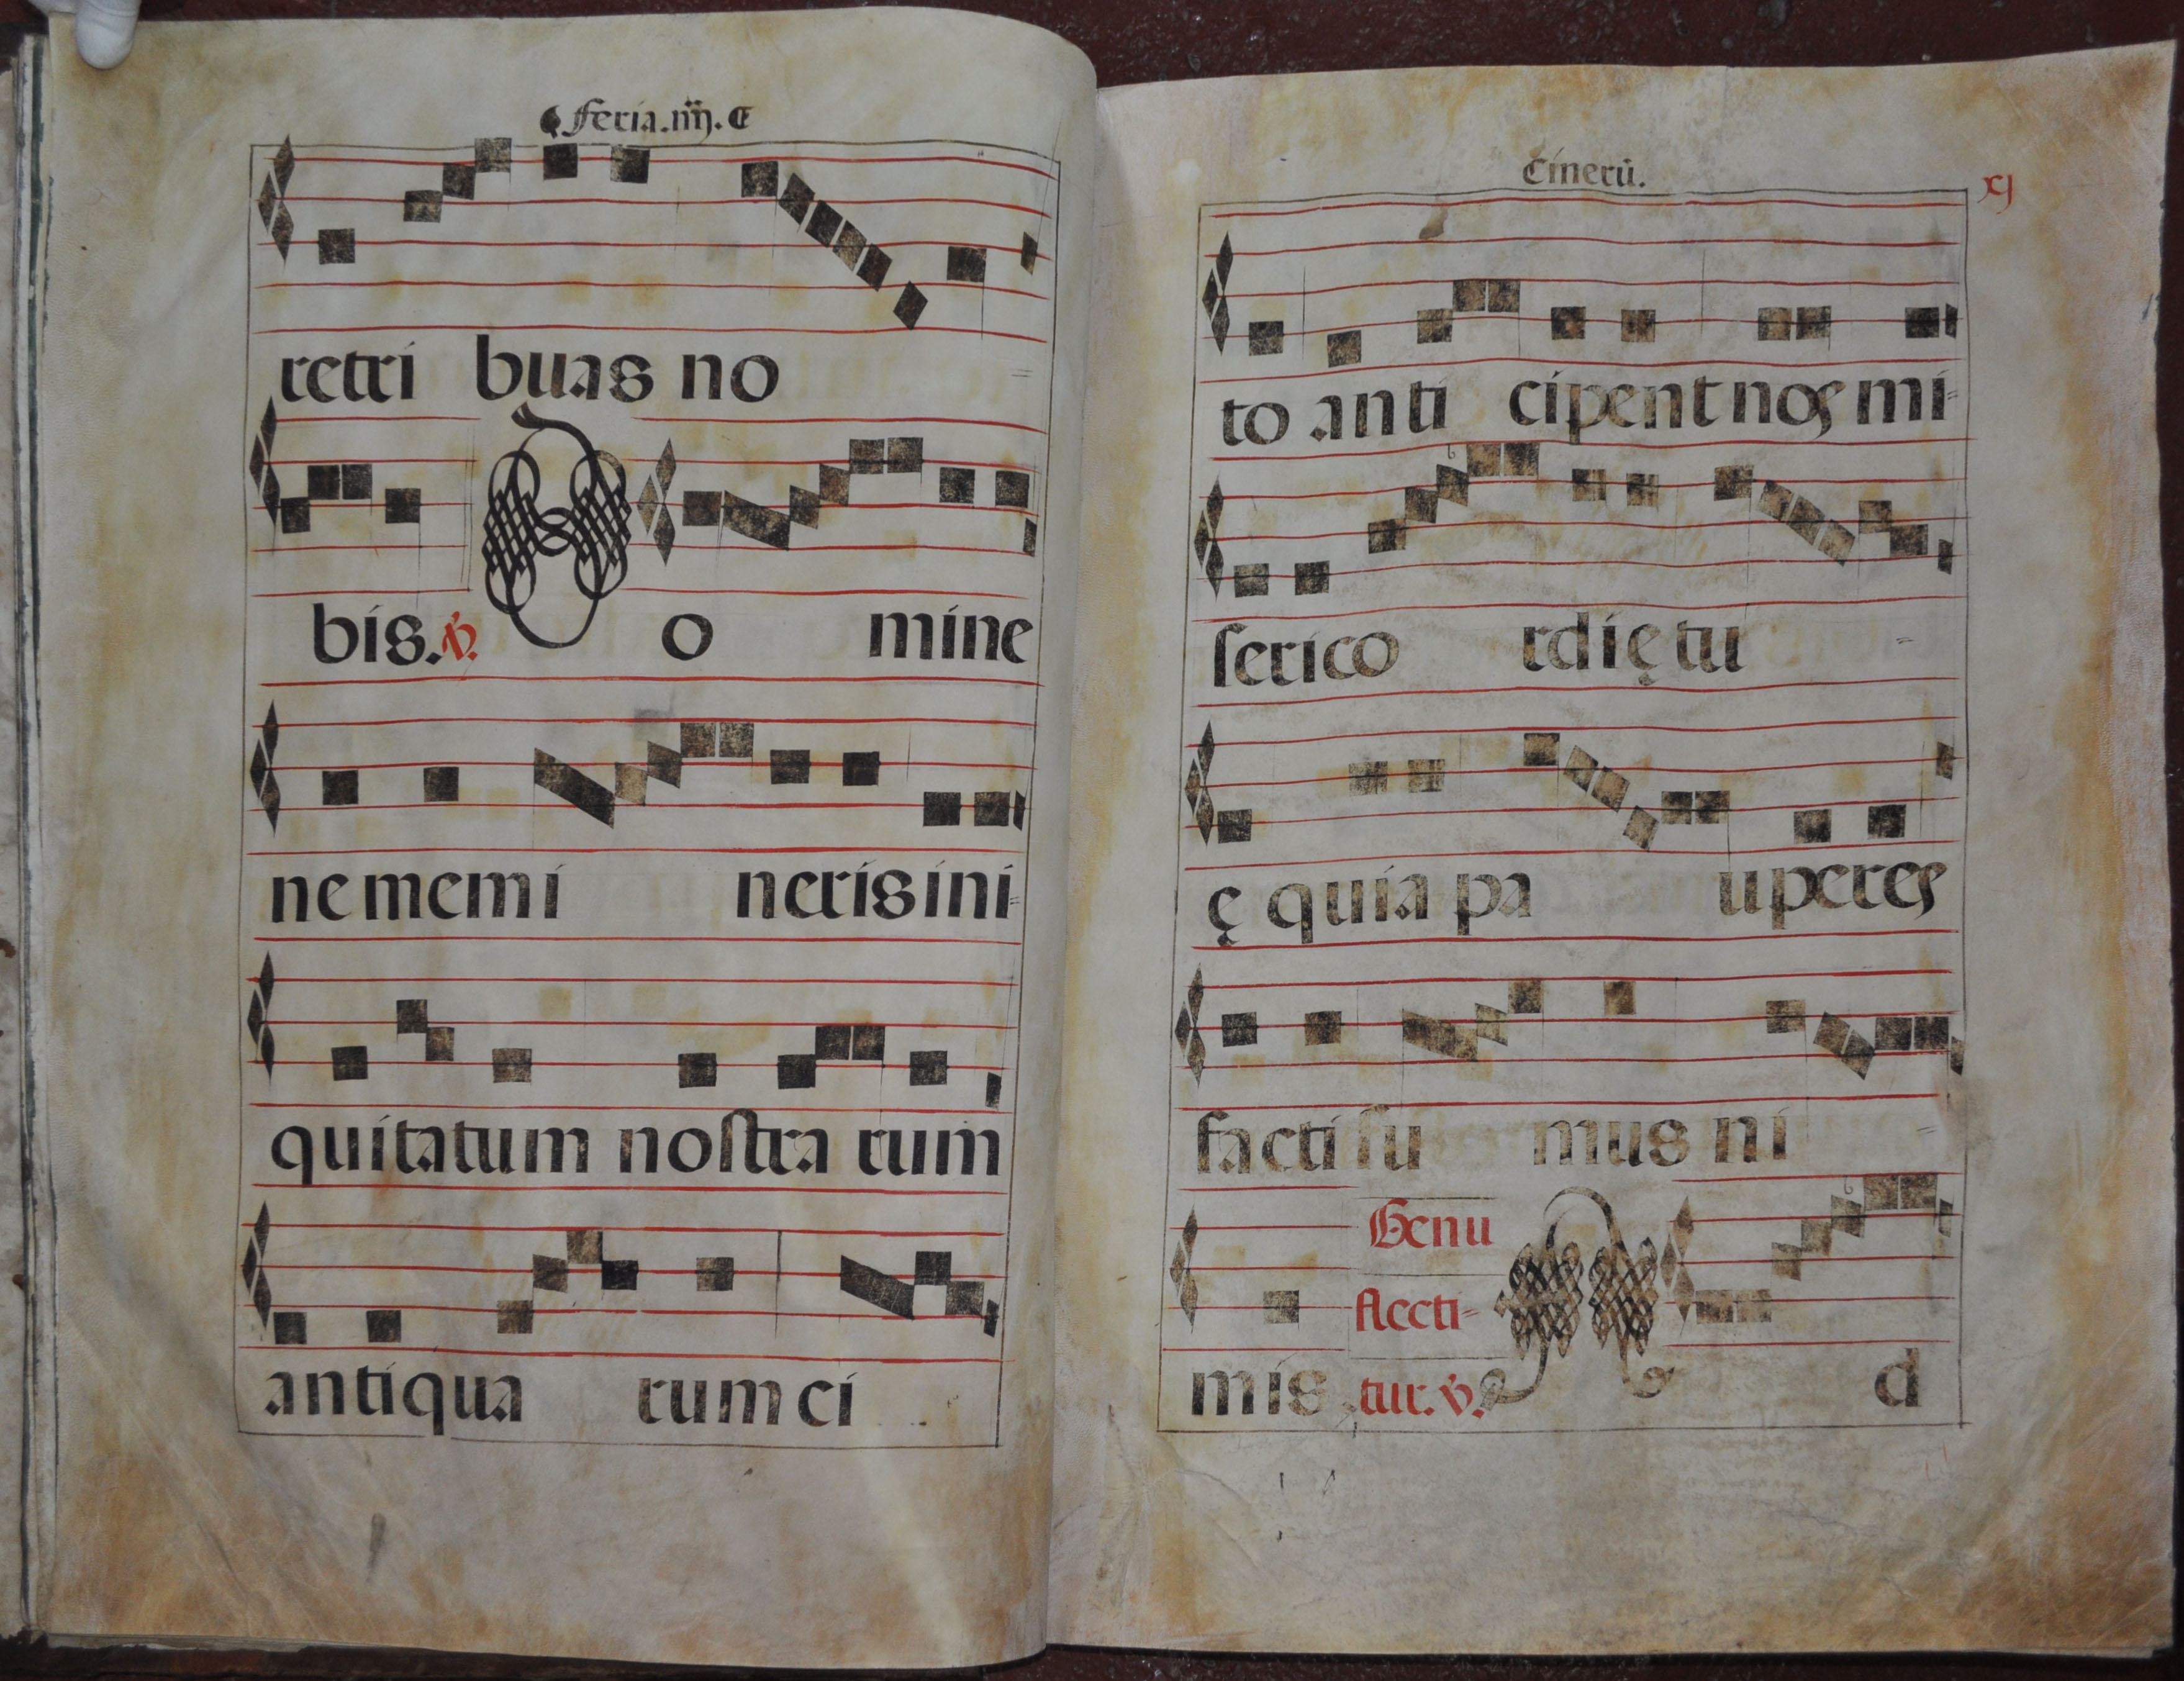 feria.iiij. C
retri buas no
bis. ℣. Do mine
ne memi neris ini-
quitatum nostra rum
antiqua rum ci
Cinerū.
xj
to anti cipent nos mi-
serico rdię tu
ę quia pa uperes
facti su mus ni
mis. Genu flecti- tur. ℣. A d